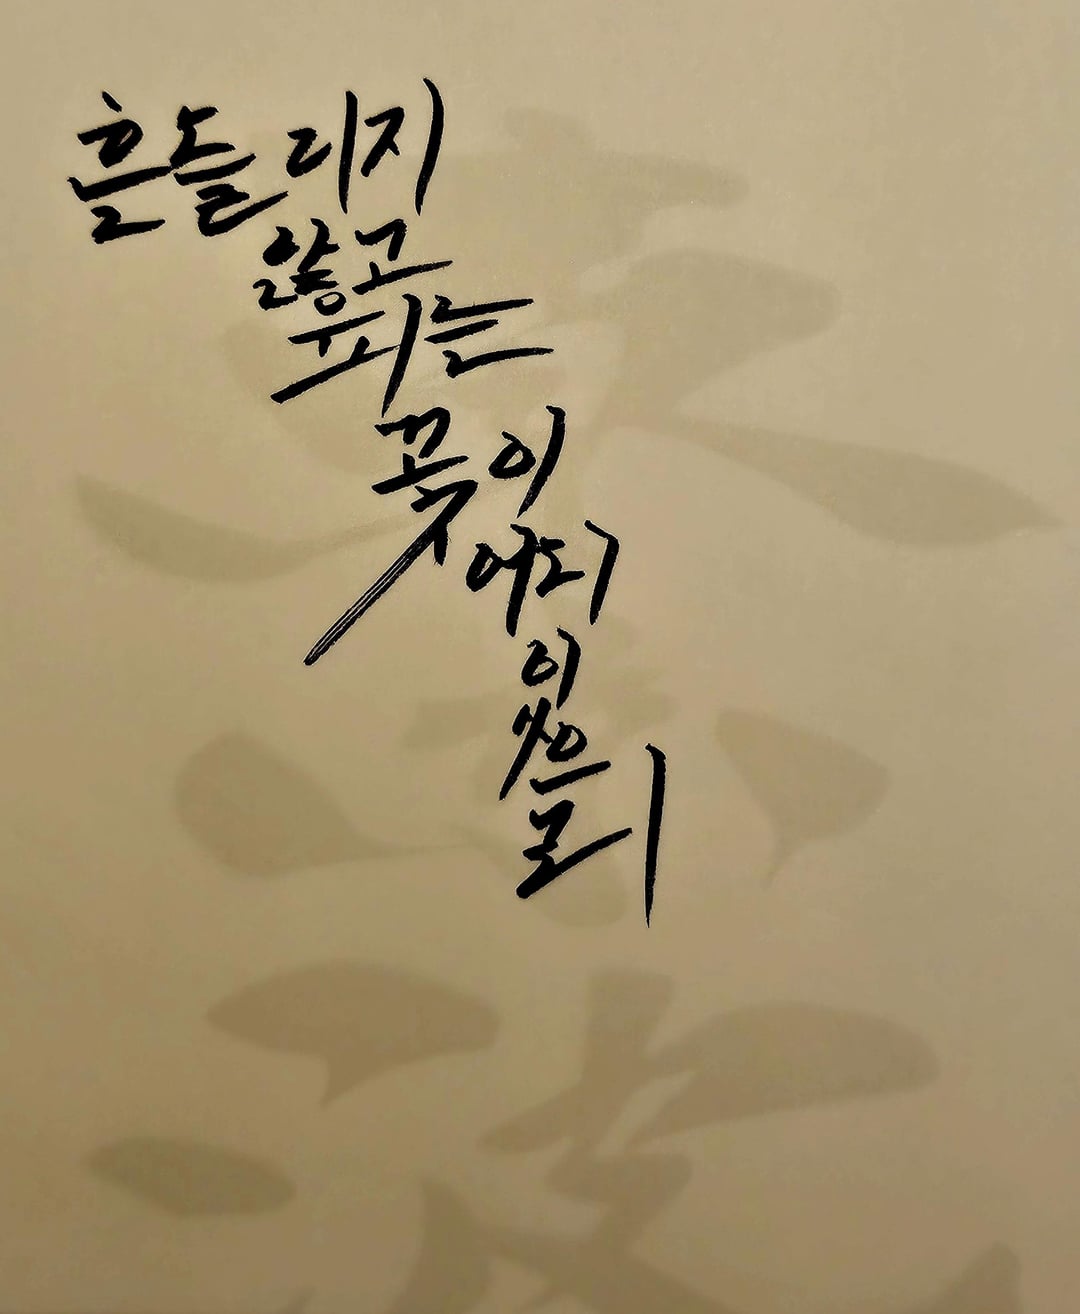 흔들리지
않고
피는
꽃이
어디
있으
리